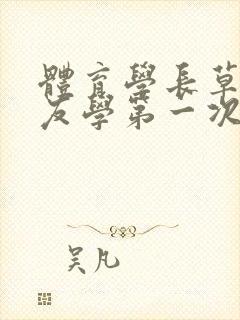 體育學長草
友學第一次
吴凡